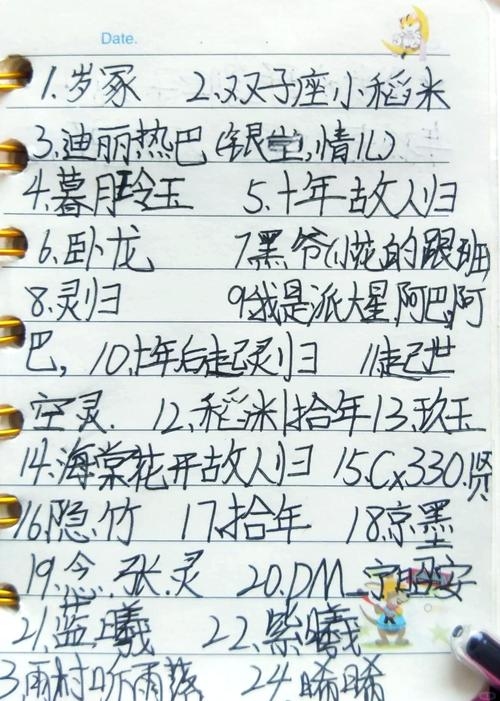 Date.
1.岁冢 2.双子座小稻米
3.迪丽热巴(银堂,情儿)
4.暮月玲玉 5.十年故人归
6.卧龙 7黑爷小花的跟班
8.灵归 9.我是派大星阿巴,阿
巴, 10.十年后起灵归 11起世
空灵. 12.稻米|拾年13.玖玉
14.海棠花开故人归 15.Cx330.贤
16.隐.竹 17.拾年 18.京墨
19.念.张.灵 20.DM_
21.蓝曦 22.紫曦
3.雨村听雨落 24.晞晞